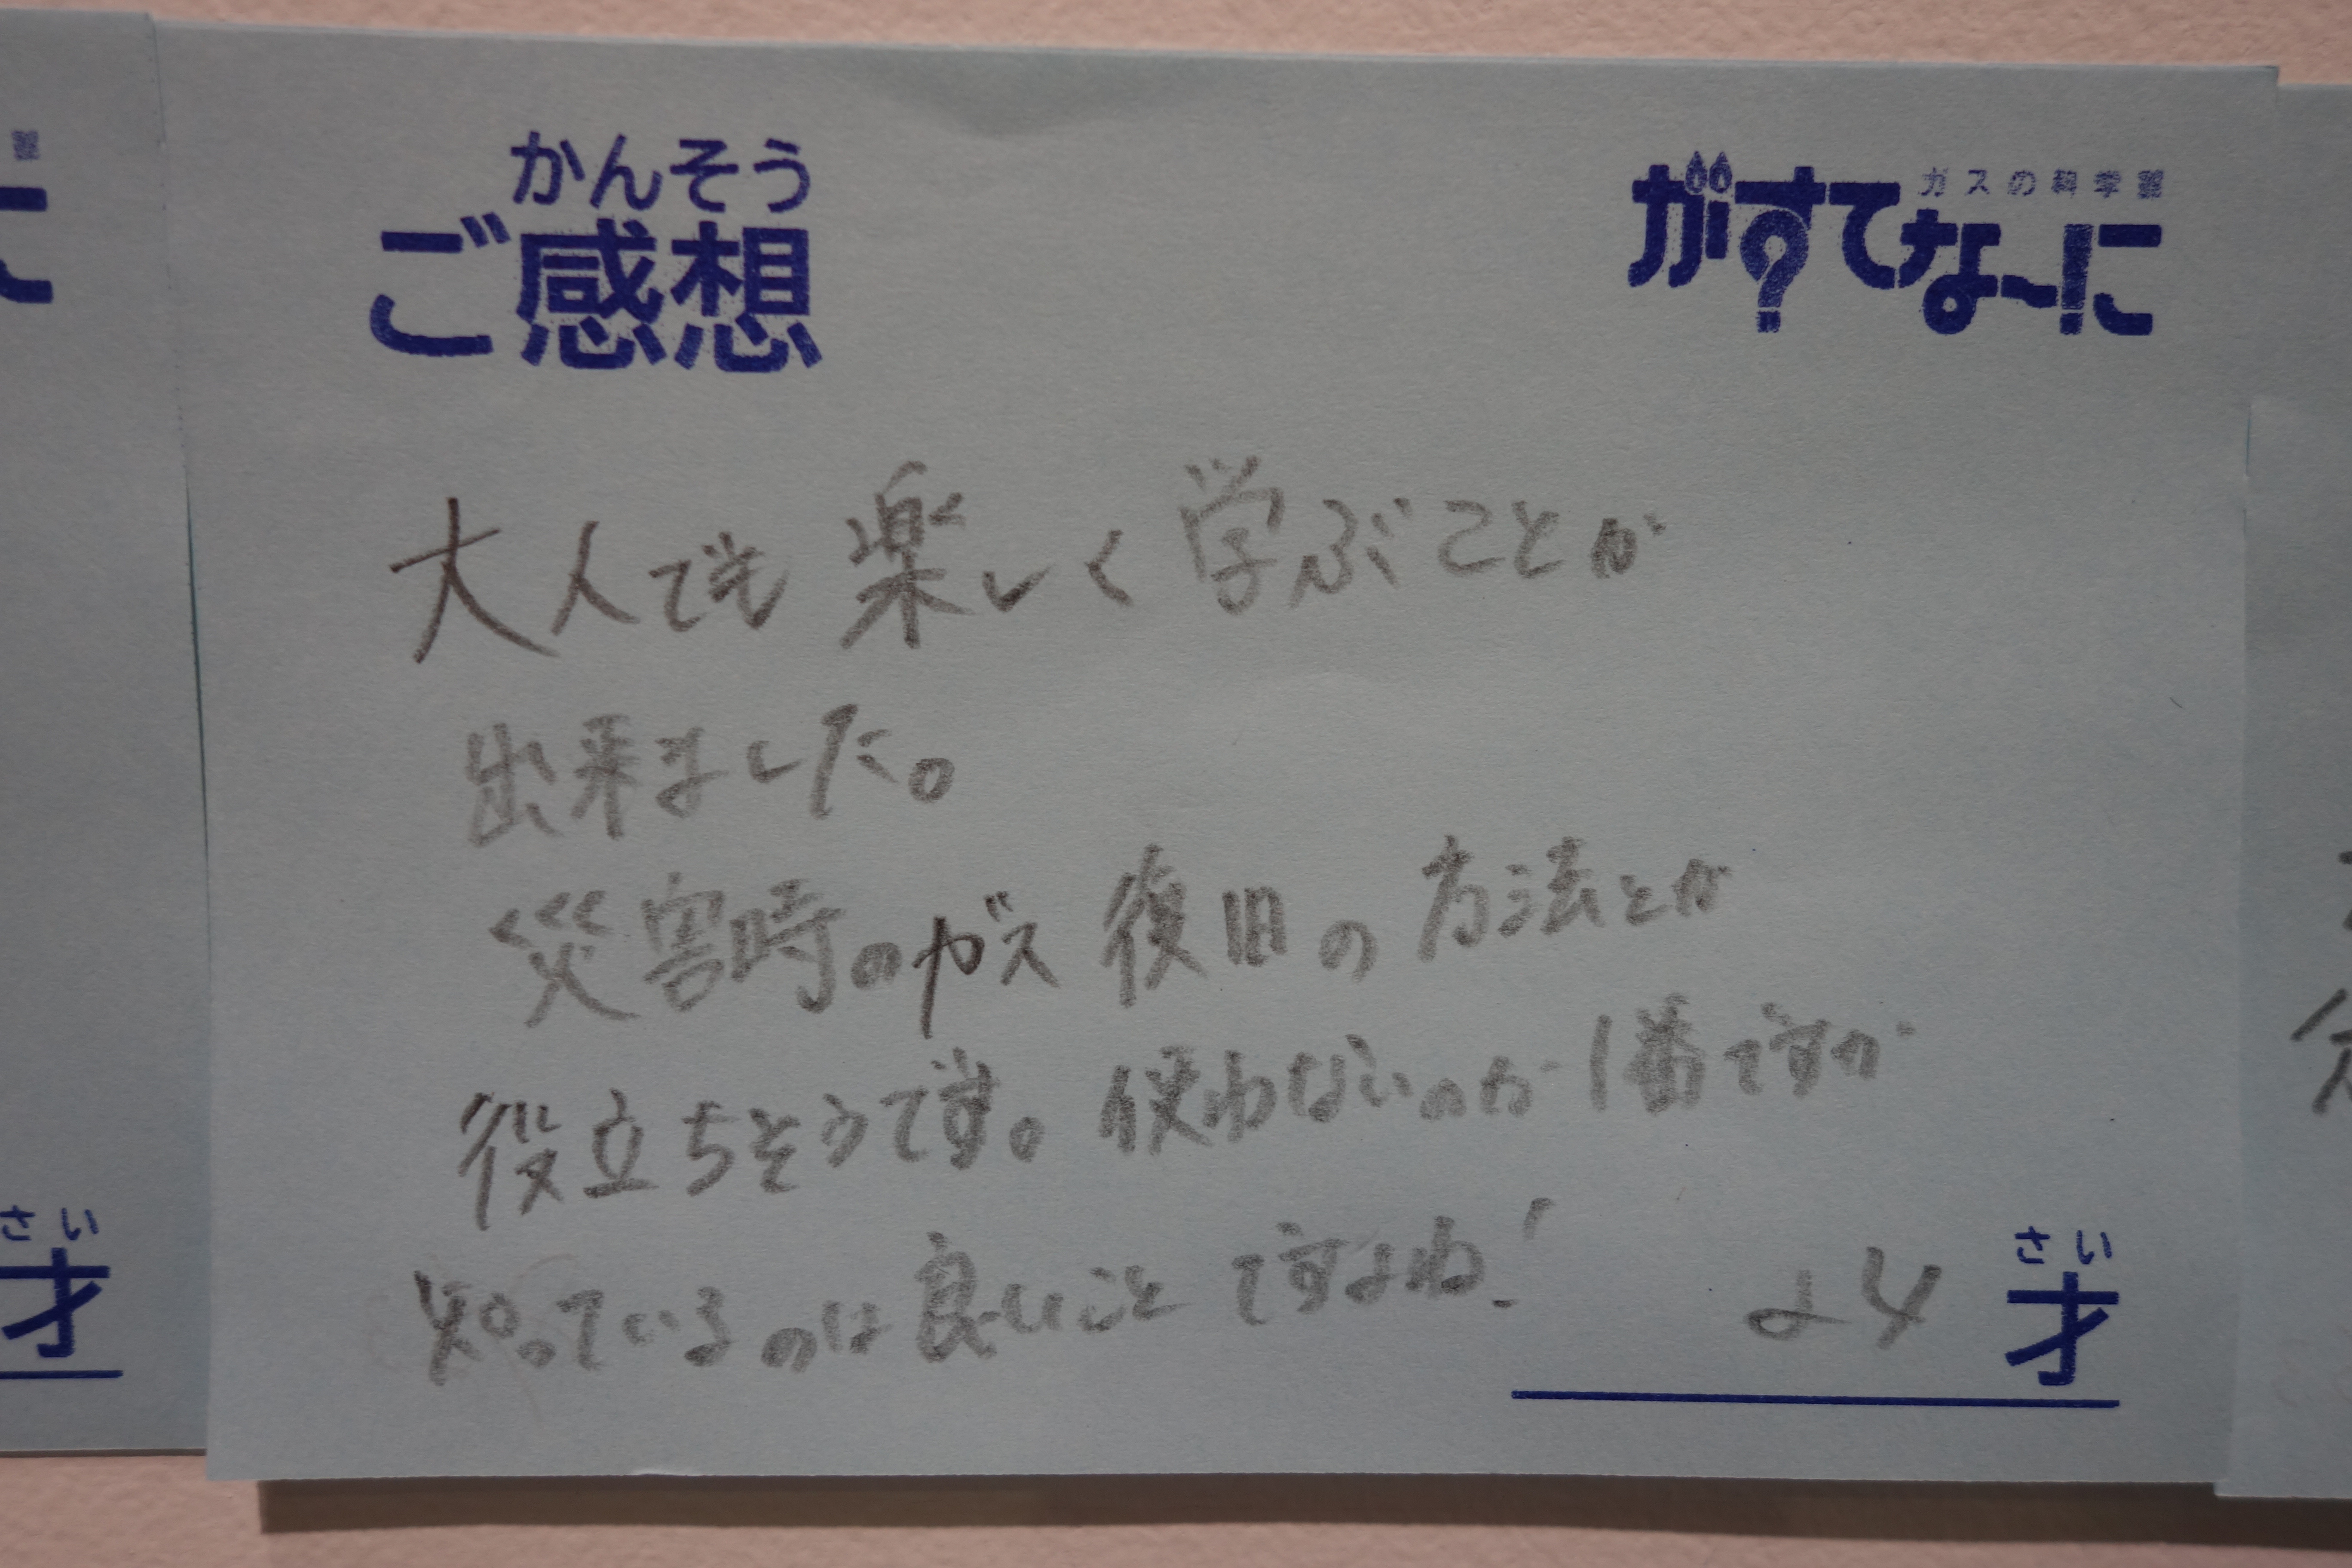 かんそう
ご感想
ガスの科学館
がすてな~に
大人でも楽しく学ぶことが
出来ました。
災害時のガス復旧の方法とか
役立ちそうです。使わないのが1番ですが
知っているのは良いことですよね!
さい
24才
さい
才